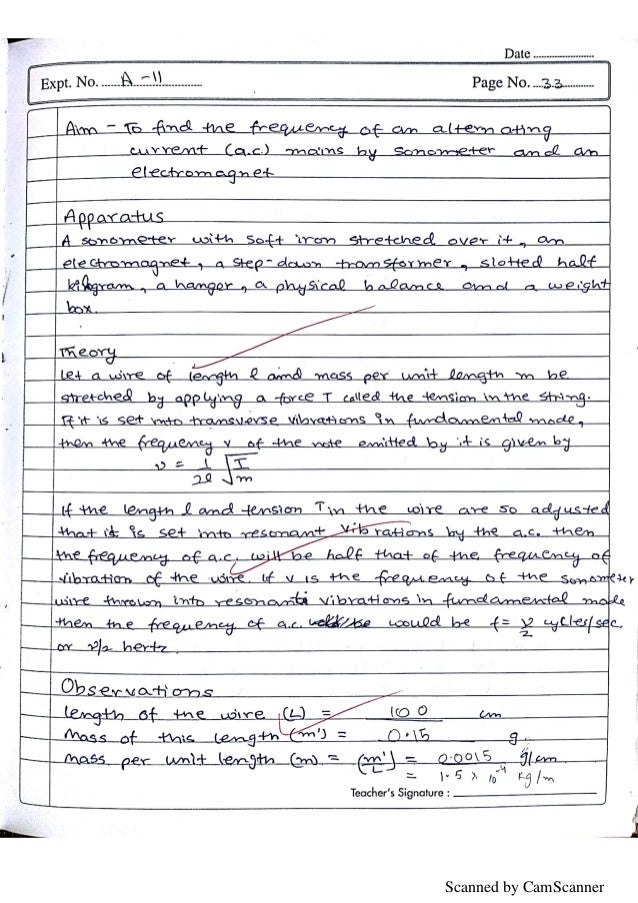 Date ........................
Expt. No. ...... A-11 ..............
Page No. ... 33 ............
Aim - To find the frequency of an alternating
current (a.c) mains by sonometer and an
electromagnet
Apparatus
A sonometer with soft iron stretched over it, an
electromagnet, a step-down transformer, slotted half
kilogram, a hanger, a physical balance and a weight
box.
Theory
Let a wire of length l and mass per unit length m be
stretched by applying a force T called the tension in the string.
If it is set into transverse vibrations in fundamental mode,
then the frequency ν of the note emitted by it is given by
ν = 1/2l √T/m
If the length l and tension T in the wire are so adjusted
that it is set into resonant vibrations by the a.c. then
the frequency of a.c. will be half that of the frequency of
vibration of the wire. If ν is the frequency of the sonometer
wire thrown into resonant vibrations in fundamental mode
then the frequency of a.c. would be f = ν/2 cycles/sec.
or ν/2 hertz
Observations
length of the wire (L) = 100 cm
Mass of this length (m') = 0.15 g.
mass per unit length (m) = (m'/L) = 0.0015 g/cm
= 1.5 x 10⁻⁴ kg/m
Teacher's Signature : ____________
Scanned by CamScanner